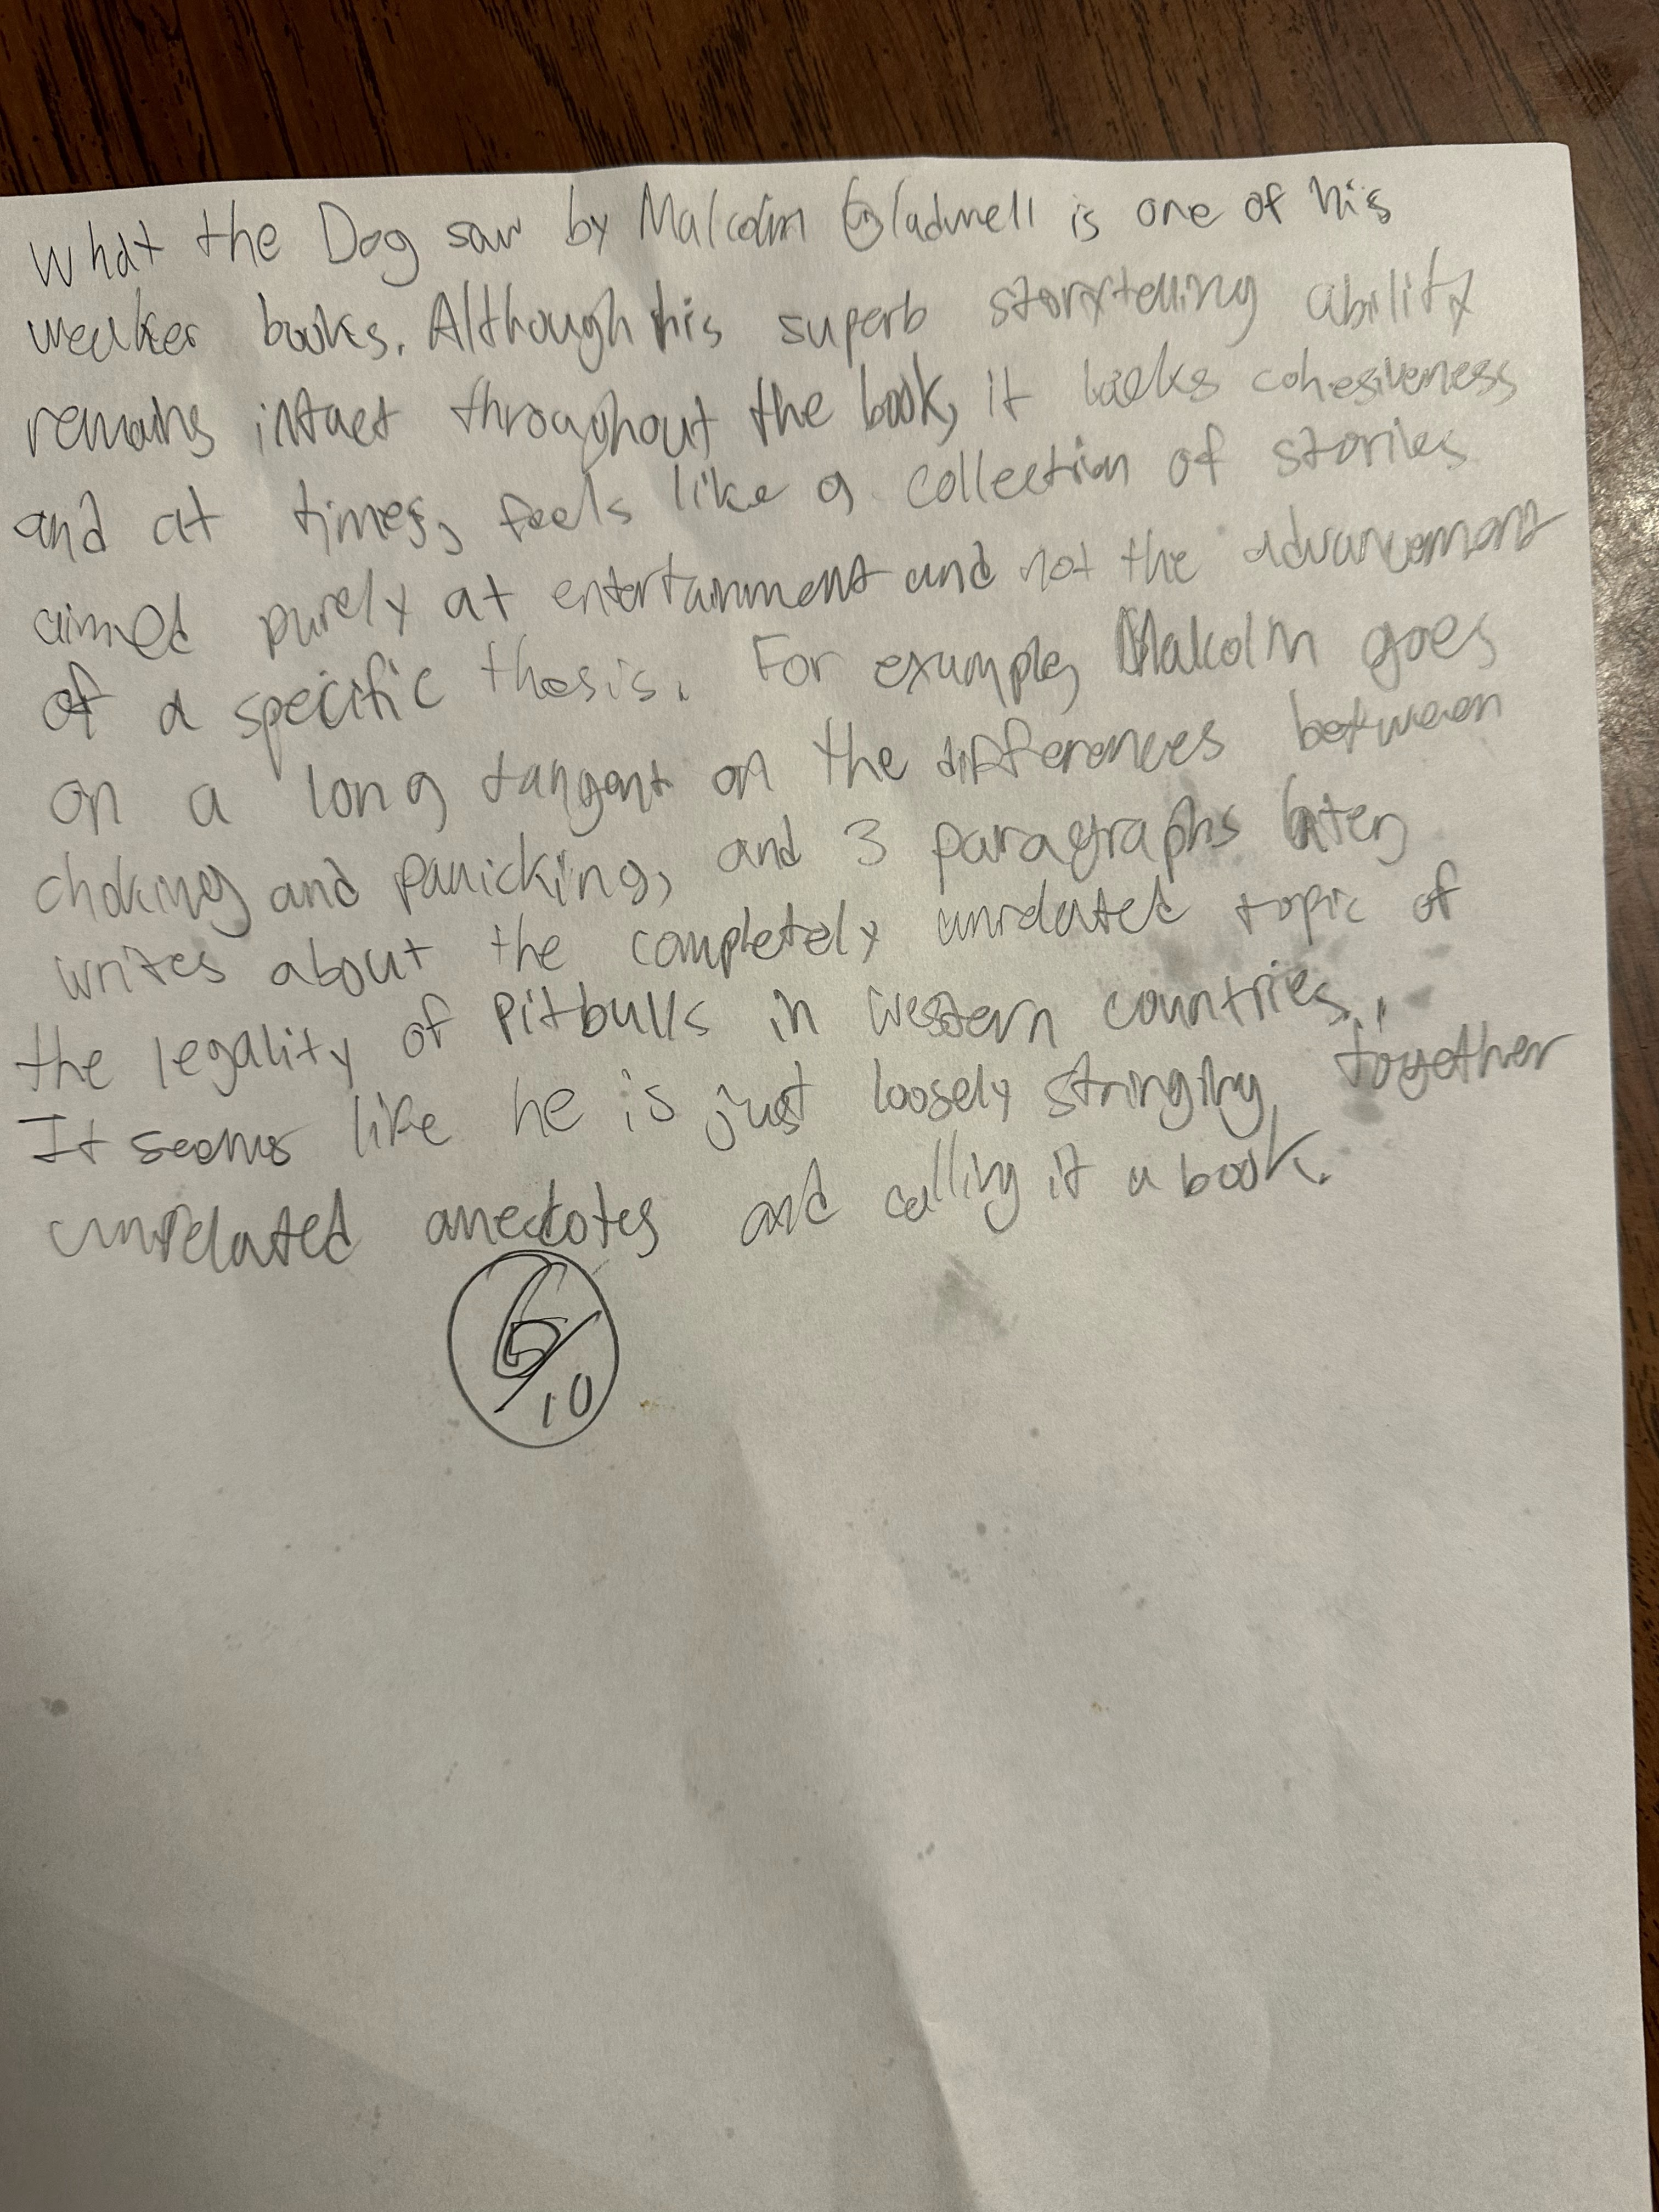 What the Dog saw by Malcolm Gladwell is one of his
weaker books. Although his superb storytelling ability
remains intact throughout the book, it lacks cohesiveness
and at times, feels like a collection of stories
aimed purely at entertainment and not the advancement
of a specific thesis. For example, Malcolm goes
on a long tangent on the differences between
choking and panicking, and 3 paragraphs later,
writes about the completely unrelated topic of
the legality of Pitbulls in Western countries.
It seems like he is just loosely stringing together
unrelated anecdotes and calling it a book.
6/10